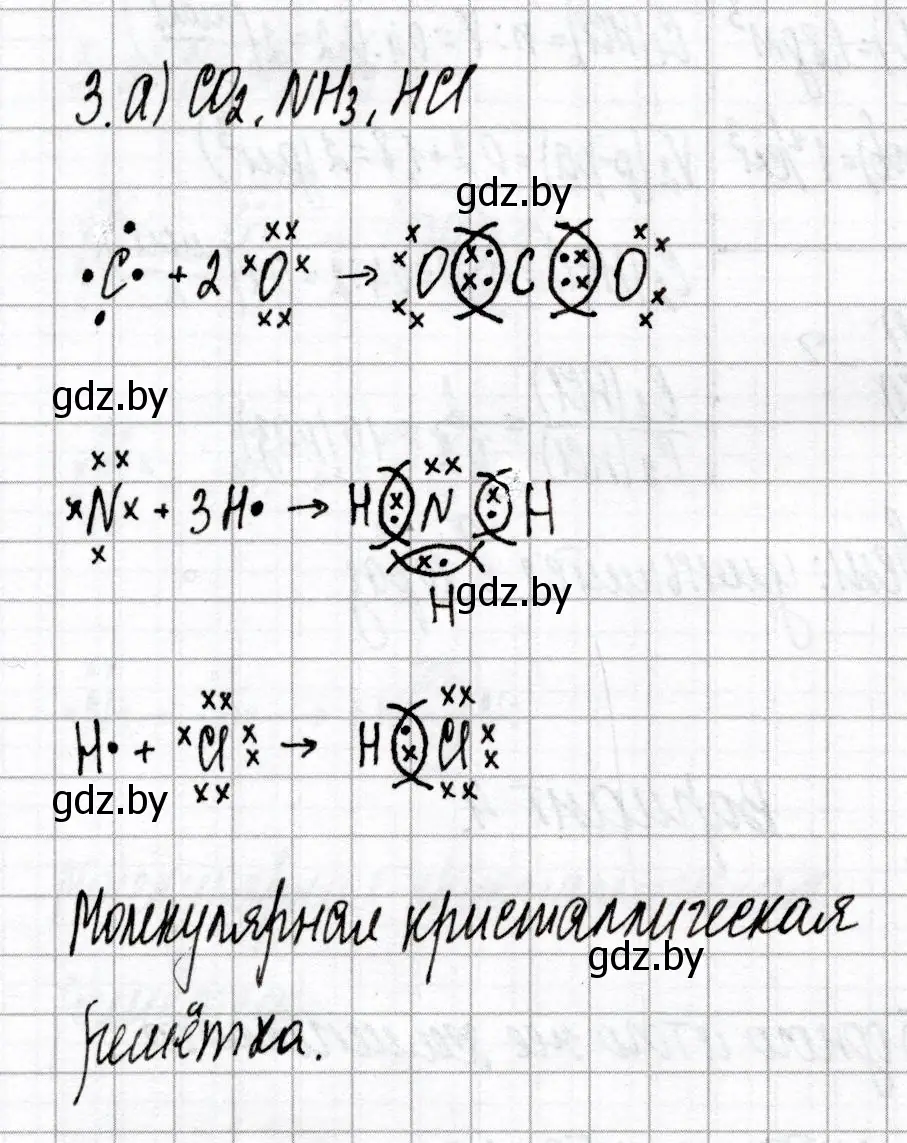 3. а) CO2, NH3, HCl
gdz.by
·C· + 2 O → O C O
gdz.by
N + 3H· → H N H
H
gdz.by
H· + Cl → H Cl
gdz.by
Молекулярная кристаллическая
gdz.by
решётка.